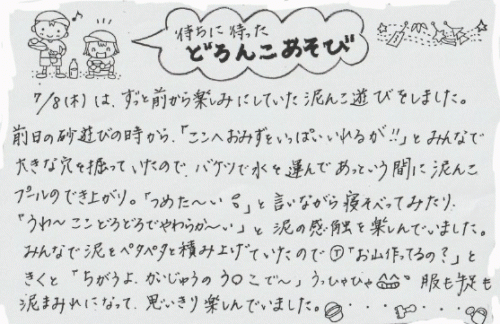 待ちに待った
どろんこあそび
7/8(木)は、ずっと前から楽しみにしていた泥んこ遊びをしました。
前日の砂遊びの時から、「ここへおみずといっぱいいれるが!!」とみんなで
大きな穴を掘っていたので、バケツで水を運んであっという間に泥んこ
プールのでき上がり。「つめた〜い」と言いながら寝そべってみたり、
「うわ〜ここどろどろでやわらか〜い」と泥の感触を楽しんでいました。
みんなで泥をペタペタと積み上げていたのでⓉ「お山作ってるの?」と
きくと「ちがうよ、かいじゅうのう○こで〜」うっひゃひゃ 服も手足も
泥まみれになって、思いきり楽しんでいました。